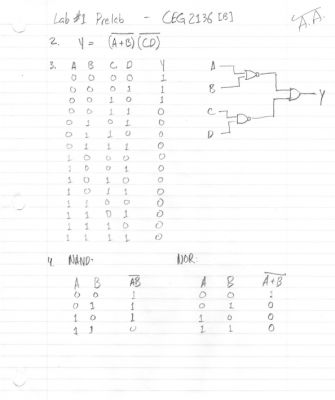 Lab #1 Prelab - CEG 2136 [B] A.A.
2. Y = (A+B) (CD)
3. A B C D Y
0 0 0 0 1
0 0 0 1 1
0 0 1 0 1
0 0 1 1 0
0 1 0 1 0
0 1 1 0 0
0 1 1 1 0
1 0 0 0 0
1 0 0 1 0
1 0 1 0 0
1 0 1 1 0
1 1 0 0 0
1 1 0 1 0
1 1 1 0 0
1 1 1 1 0
A
B
C
D
Y
4. NAND: NOR:
A B AB A B A+B
0 0 1 0 0 1
0 1 1 0 1 0
1 0 1 1 0 0
1 1 0 1 1 0